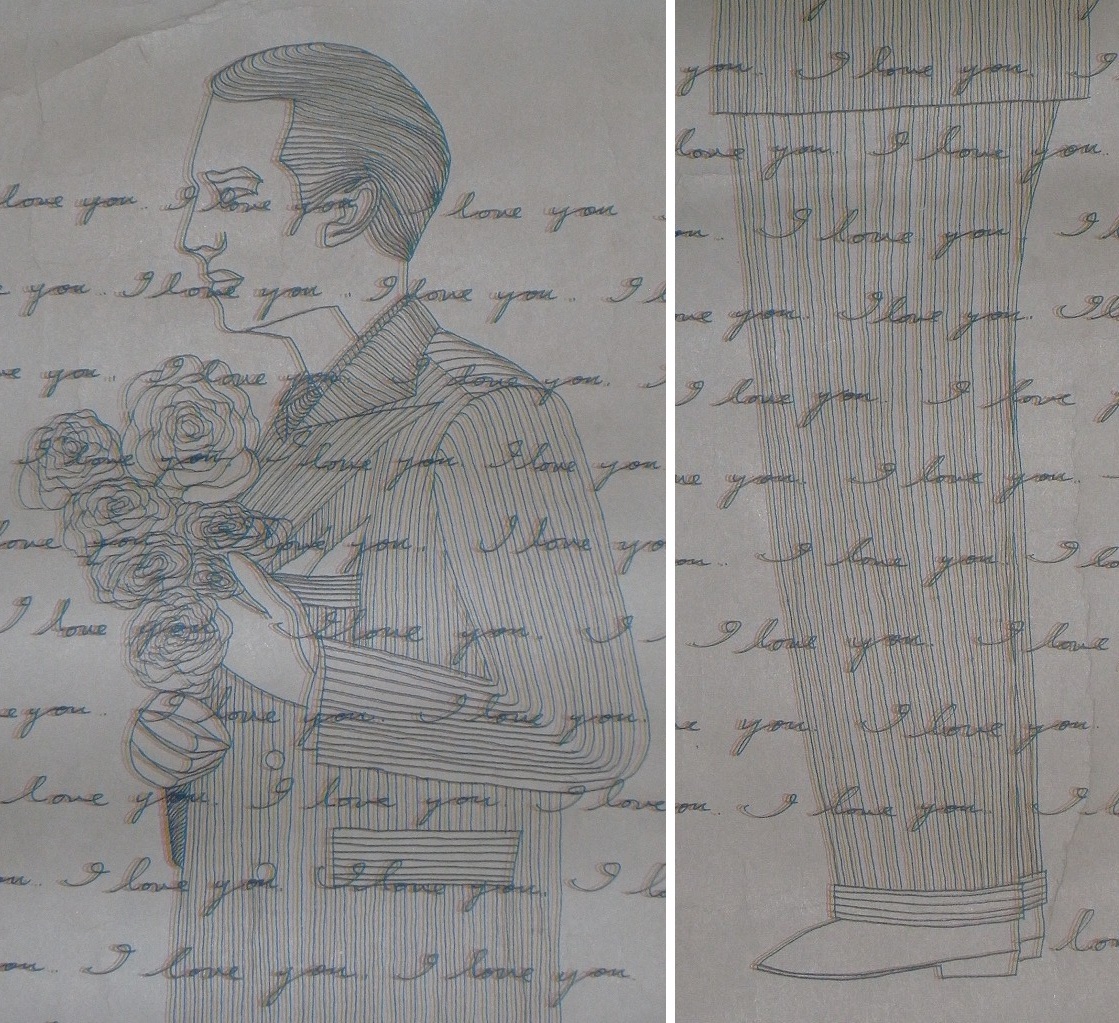 love you.. I love you I love you
you.. I love you ... I love you.. I
you.. I love you I love you. I
I love you I love you I love you.
love you I love you.. I love yo
I love you I love you. I
you.. I love you. I love you.
love you I love you I love
I love you. I love you. I lo
I love you.. I love you
you. I love you. I
love you. I love you..
I love you. I
you.. I love you. I
I love you.. I love y
you.. I love you..
I love you. I lo
I love you. I love
you.. I love you.
I love you. I
lov